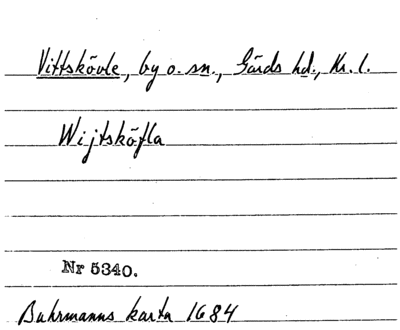 Vittskövle, by o. sn., Gärds hd., Kr. l.
Wijtsköfla
Nr 5340.
Buhrmanns karta 1684